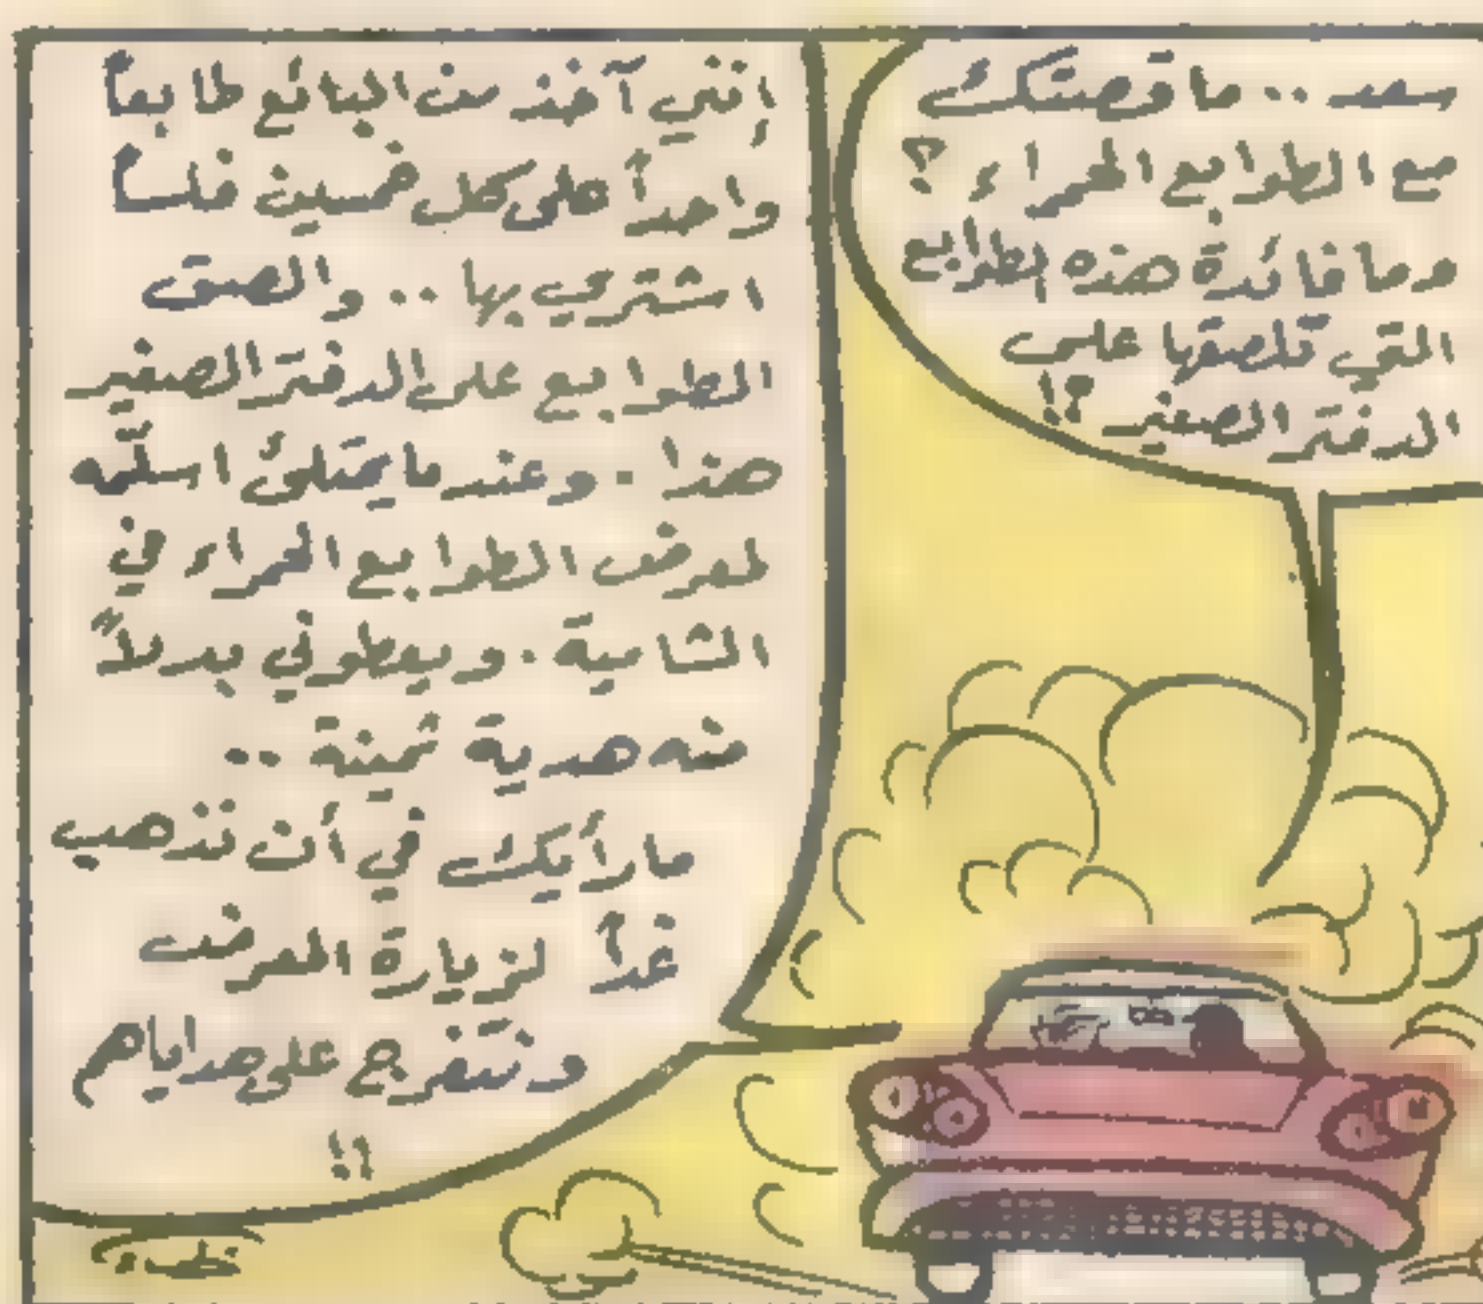 سعد .. ما قصتك
مع الطوابع الحمراء ؟
وما فائدة هذه الطوابع
التي تلصقها على
الدفتر الصغير ؟!
إنني آخذ من البائع طابعاً
واحداً على كل خمسين فلساً
اشتري بها .. والصق
الطوابع على الدفتر الصغير
هذا . وعندما يمتلئ اسلّمه
لمعرض الطوابع الحمراء في
الشامية . ويعطوني بدلاً
منه هدية ثمينة ..
ما رأيك في أن نذهب
غداً لزيارة المعرض
ونتفرج على هداياهم
!!